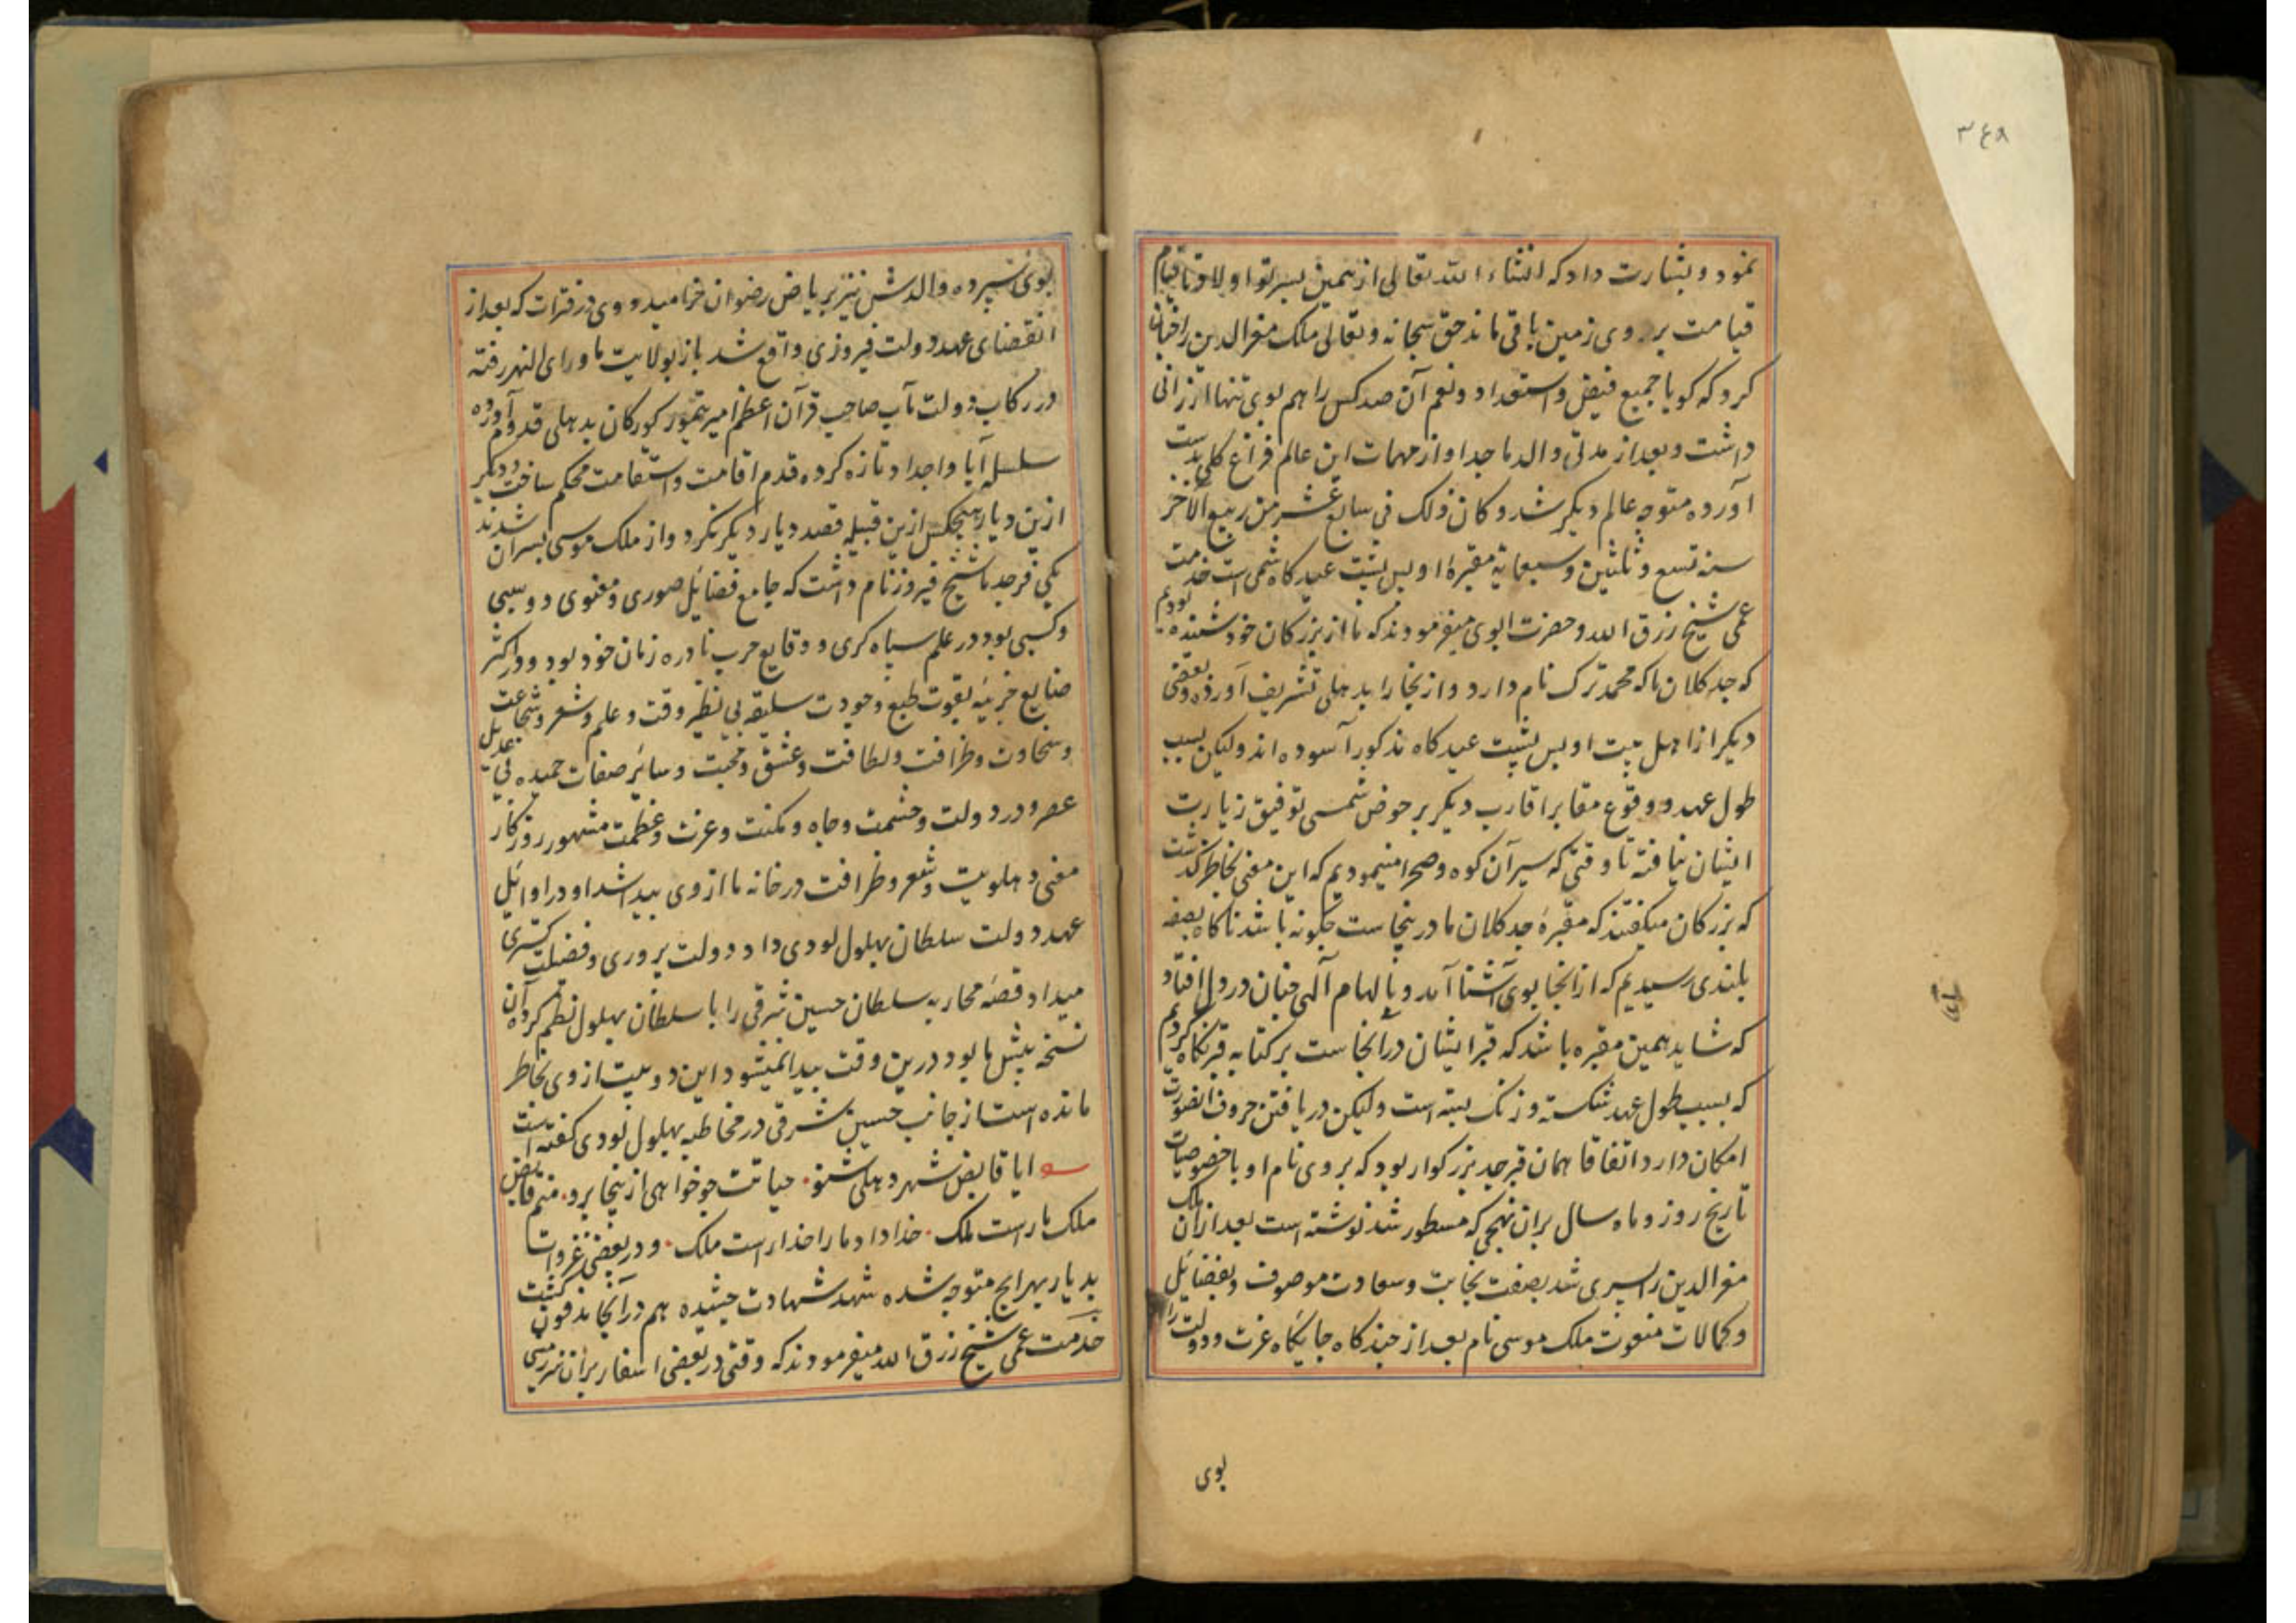 ۳۴۹
نمود و بشارت داد که انشاء الله تعالی از همین پسر تو اولاد تا قیام
قیامت بر روی زمین باقی ماند حق سبحانه و تعالی ملک معزالدین را چنان
کرد که کویا جمیع فیض و استعداد و نعم آن صد کس را هم بوی تنها ارزانی
داشت و بعد از مدتی والد ماجد او از مهمات این عالم فراغ کلی بدست
آورده متوجه عالم دیکر شد و کان ذلک فی سابع عشر من ربیع الآخر
سنه تسع و ثلثین و سبعمایة مقبرۀ او پس پشت عیدکاه شمسی است خدمت
عمی شیخ رزق الله و حضرت ابوی میفرمودند که ما از بزرکان خود شنیده بودیم
که جد کلان ما که محمد ترک نام دارد و از بخارا بدهلی تشریف آورده و بعضی
دیکر از اهل بیت او پس پشت عیدکاه مذکور آسوده اند ولیکن بسبب
طول عهد و وقوع مقابر اقارب دیکر بر حوض شمسی توفیق زیارت
ایشان نیافته تا وقتی که سیر آن کوه و صحرا میمودیم که این معنی بخاطر کذشت
که بزرکان میکفتند که مقبرۀ جد کلان ما در ینجاست چکونه باشد ناکاه بصفه
بلندی رسیدیم که از انجا بوی آشنا آمد و بالهام آلهی چنان در دل افتاد
که شاید همین مقبره باشد که قبر ایشان در آنجاست بر کتابه قبر نکاه کردیم
که بسبب طول عهد شکسته و زنک بسته است ولیکن دریافتن حروف انصورت
امکان دارد اتفاقا همان قبر جد بزرکوار بود که بروی نام او با خصوصیات
تاریخ روز و ماه و سال بران نهجی که مسطور شد نوشته است بعد ازان ملک
معزالدین را پسری شد بصفت نجابت و سعادت موصوف و بفضائل
و کمالات منعوت ملک موسی نام بعد از چندکاه جایکاه عزت و دولت را
بوی
بوی سپرده والدش نیز بریاض رضوان خرامید و وی در فترات که بعد از
انقضای عهد دولت فیروزی واقع شد باز بولایت ماورای النهر رفته
و در رکاب دولت مآب صاحب قرآن اعظم امیر تیمور کورکان بدهلی قدوم آورده
سلسله آبا و اجداد تازه کرده قدم اقامت و استقامت محکم ساخت و دیکر
ازین دیار هیچکس ازین قبیله قصد دیار دیکر نکرد و از ملک موسی پسران شدند
یکی فرجد ما شیخ فیروز نام داشت که جامع فضائل صوری و معنوی و وسبی
و کسبی بود در علم سپاه کری و وقایع حرب نادره زمان خود بود و در اکثر
صنایع جزئیه بقوت طبع و جودت سلیقه بی نظیر وقت و علم و شعر و شجاعت
و سخاوت و ظرافت و لطافت و عشق و محبت و سایر صفات حمیده بی عدیل
عصر و در دولت و حشمت و جاه و مکنت و عزت و عظمت مشهور روزکار
معنی دهلویت و شعر و ظرافت در خانه ما از وی پیدا شد او در اوائل
عهد دولت سلطان بهلول لودی داد دولت پروری و فضیلت کستری
میداد قصه محاربه سلطان حسین شرقی را با سلطان بهلول نظم کرده آن
نسخه پیش ما بود درین وقت پیدا نمیشود این دو بیت از وی بخاطر
مانده است از جانب حسین شرقی در مخاطبه بهلول لودی کفته است
ایا قابض شهر دهلی شنو حیاتت چو خواهی از ینجا برو منم قابض
ملک ما راست ملک خدا داد ما را خدا راست ملک و در بعضی غزوات
بدیار بهرایج متوجه شده شهد شهادت چشیده هم در آنجا مدفون کشت
خدمت عمی شیخ رزق الله میفرمودند که وقتی در بعضی اسفار بران